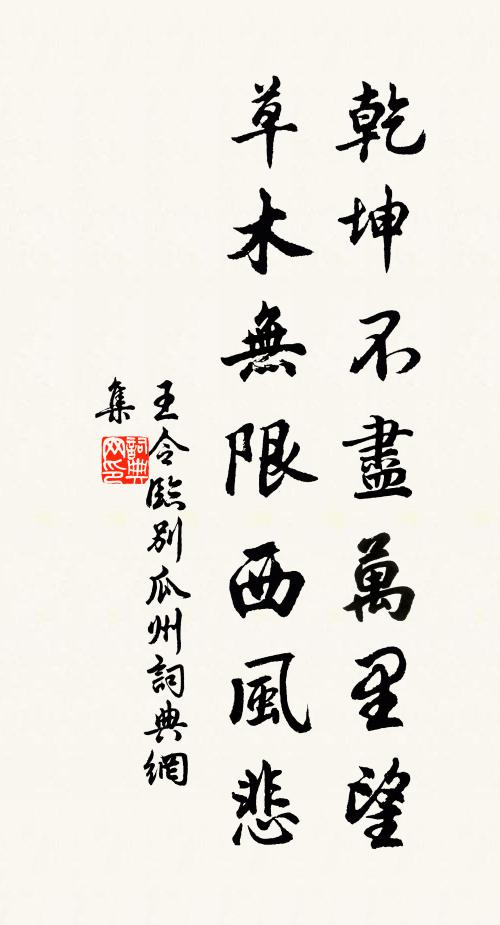 乾坤不盡萬里望
草木無限西風悲
王令臨別瓜州詞典網
集
詞典网印